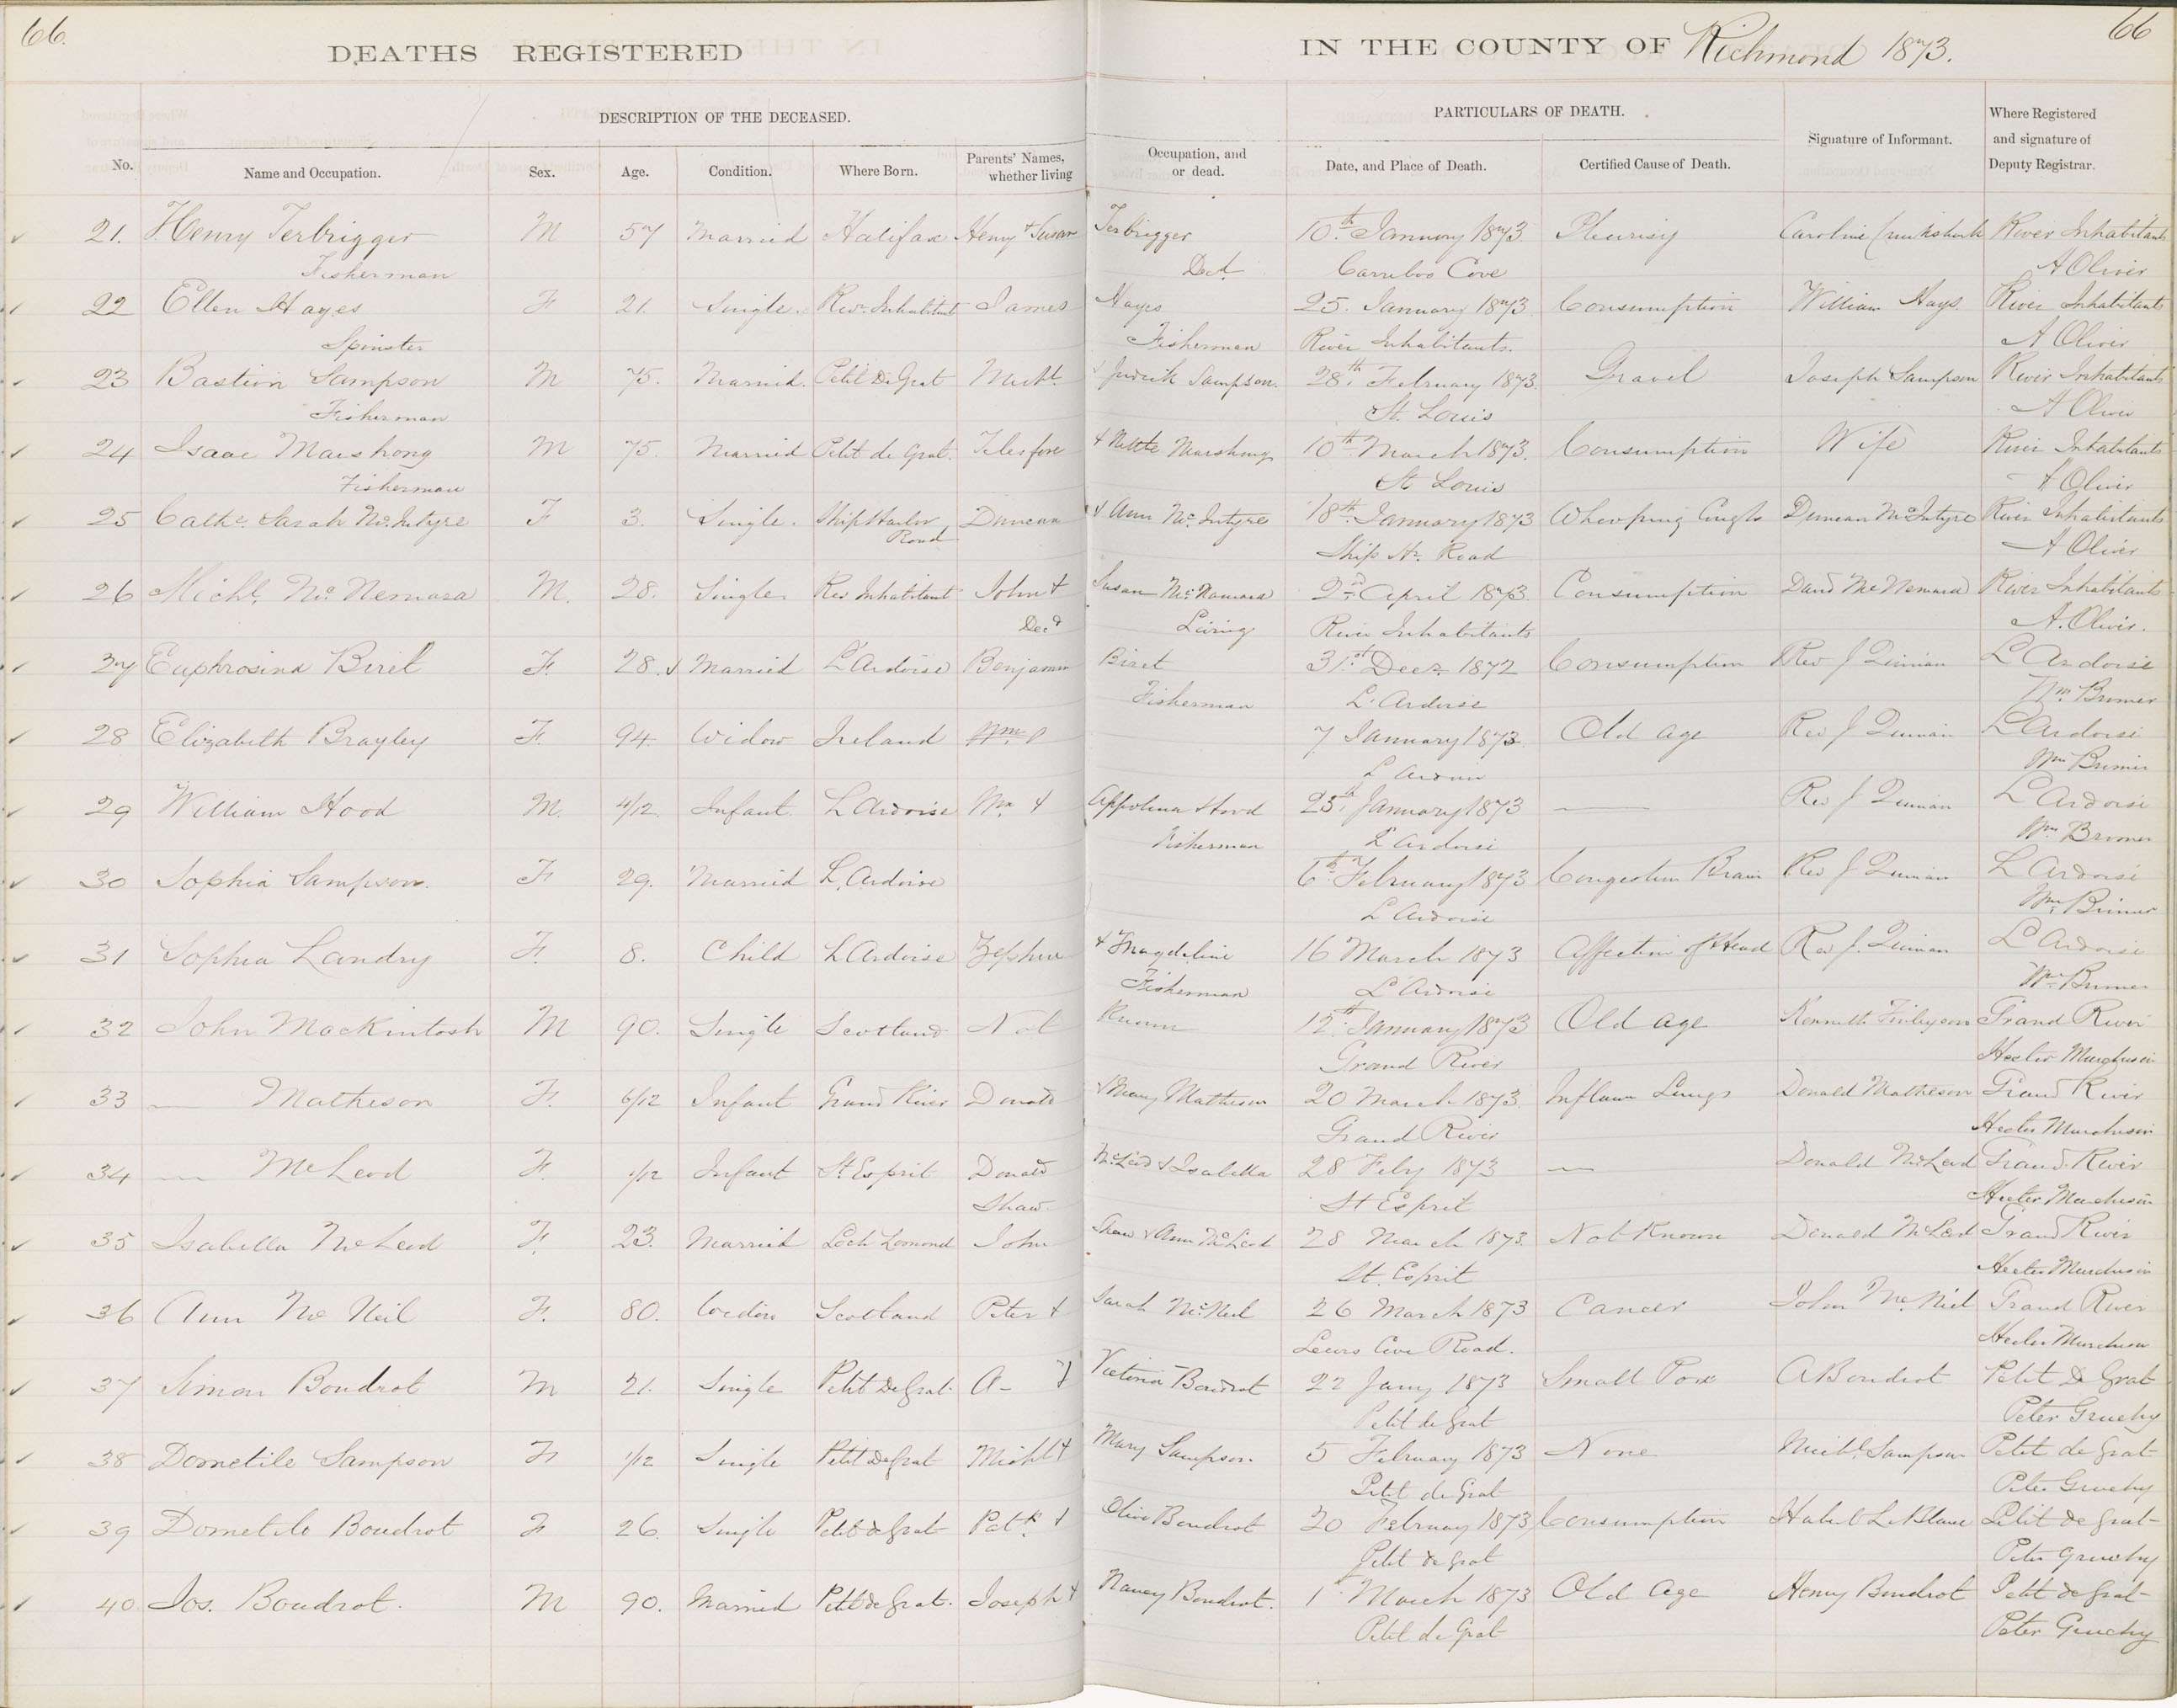 66.
66
DEATHS REGISTERED IN THE COUNTY OF Richmond 1873.
DESCRIPTION OF THE DECEASED. PARTICULARS OF DEATH.
No. Name and Occupation. Sex. Age. Condition. Where Born. Parents' Names, whether living Occupation, and or dead. Date, and Place of Death. Certified Cause of Death. Signature of Informant. Where Registered and signature of Deputy Registrar.
21. Henry Terbrigger M 57 Married Halifax Henry + Susan Terbrigger 10th January 1873 Pleurisy Caroline River Inhabitants
Fisherman Decd. Carriboo Cove A Oliver
22 Ellen Hayes F 21. Single. Rivr. Inhabitant James Hayes 25. January 1873 Consumption William Hays. River Inhabitants
Spinster Fisherman River Inhabitants. A Oliver
23 Bastion Sampson M 75. Married. Petit De Grat Michl. Sampson. 28th. February 1873 Gravel Joseph Sampson River Inhabitants
Fisherman St. Louis A Oliver
24 Isaac Marshong M 75. Married Petit de Grat. Telesfore + Marshong 10th March 1873. Consumption Wife River Inhabitants
Fisherman St Louis A Oliver
25 Cathe. Sarah McIntyre F 3. Single. Ship Harbor Duncan + Ann McIntyre 18th. January 1873 Whooping Cough Duncan McIntyre River Inhabitants
Road Ship Hr. Road A Oliver
26 Michl. Mc Nemara M. 28. Single Riv Inhabitant John + Susan McNamara 2nd April 1873 Consumption David McNemara River Inhabitants
Decd Living River Inhabitants A. Oliver.
27 Euphrosina Biret F. 28. Married L'Ardoise Benjamin Biret 31st Decr. 1872 Consumption Rev J Quinan L'Ardoise
Fisherman L'Ardoise Wm. Brimer
28 Elizabeth Brayley F. 94 Widow Ireland 7 January 1873 Old age Rev J Quinan L'Ardoise
L'Ardoise Wm Brimer
29 William Hood M. 4/12 Infant. L'Ardoise Wm. + Appolina Hood 25th January 1873 — Rev J Quinan L'Ardoise
Fisherman L'Ardoise Wm Brimer
30 Sophia Sampson. F 29. Married L'Ardoise 6th. February 1873 Congestion Brain Rev J Quinan L'Ardoise
L'Ardoise Wm. Brimer
31 Sophia Landry F. 8. Child L'Ardoise Zephire + Magdeline 16 March 1873 Affection of Head Rev J. Quinan L'Ardoise
Fisherman L'Ardoise Wm Brimer
32 John MacKintosh M 90. Single Scotland Not Known 12th January 1873 Old age Kenneth Finlayson Grand River
Grand River Hector Murchison
33 — Matheson F. 6/12 Infant Grand River Donald + Mary Matheson 20 March 1873 Inflam Lungs Donald Matheson Grand River
Grand River Hector Murchison
34 — McLeod F. 1/12 Infant St Esprit Donald McLeod + Isabella 28 Feby 1873 — Donald McLeod Grand River
Shaw St Esprit Hector Murchison
35 Isabella McLeod F. 23. Married Loch Lomond John Shaw + Ann McLeod 28 March 1873. Not Known Donald McLeod Grand River
St. Esprit Hector Murchison
36 Ann Mc Neil F. 80. Widow Scotland Peter + Sarah McNeil 26 March 1873 Cancer John McNiel Grand River
Lewis Cove Road. Hector Murchison
37 Simon Boudrot M 21. Single Petit De Grat. A- + Victoria Boudrot 22 Jany 1873 Small Pox A Boudrot Petit De Grat
Petit de Grat Peter Gruchy
38 Dometile Sampson F 1/12 Single Petit De Grat Michl + Mary Sampson. 5 February 1873 None Michl. Sampson Petit de Grat
Petit de Grat Peter Gruchy
39 Dometile Boudrot F 26. Single Petit de Grat Patk. + Olive Boudrot 20 February 1873 Consumption LeBlanc Petit de Grat
Petit de Grat Peter Gruchy
40 Jos. Boudrot. M 90. Married Petit de Grat. Joseph + Nancy Boudrot. 1st March 1873 Old Age Henry Boudrot Petit de Grat
Petit de Grat Peter Gruchy